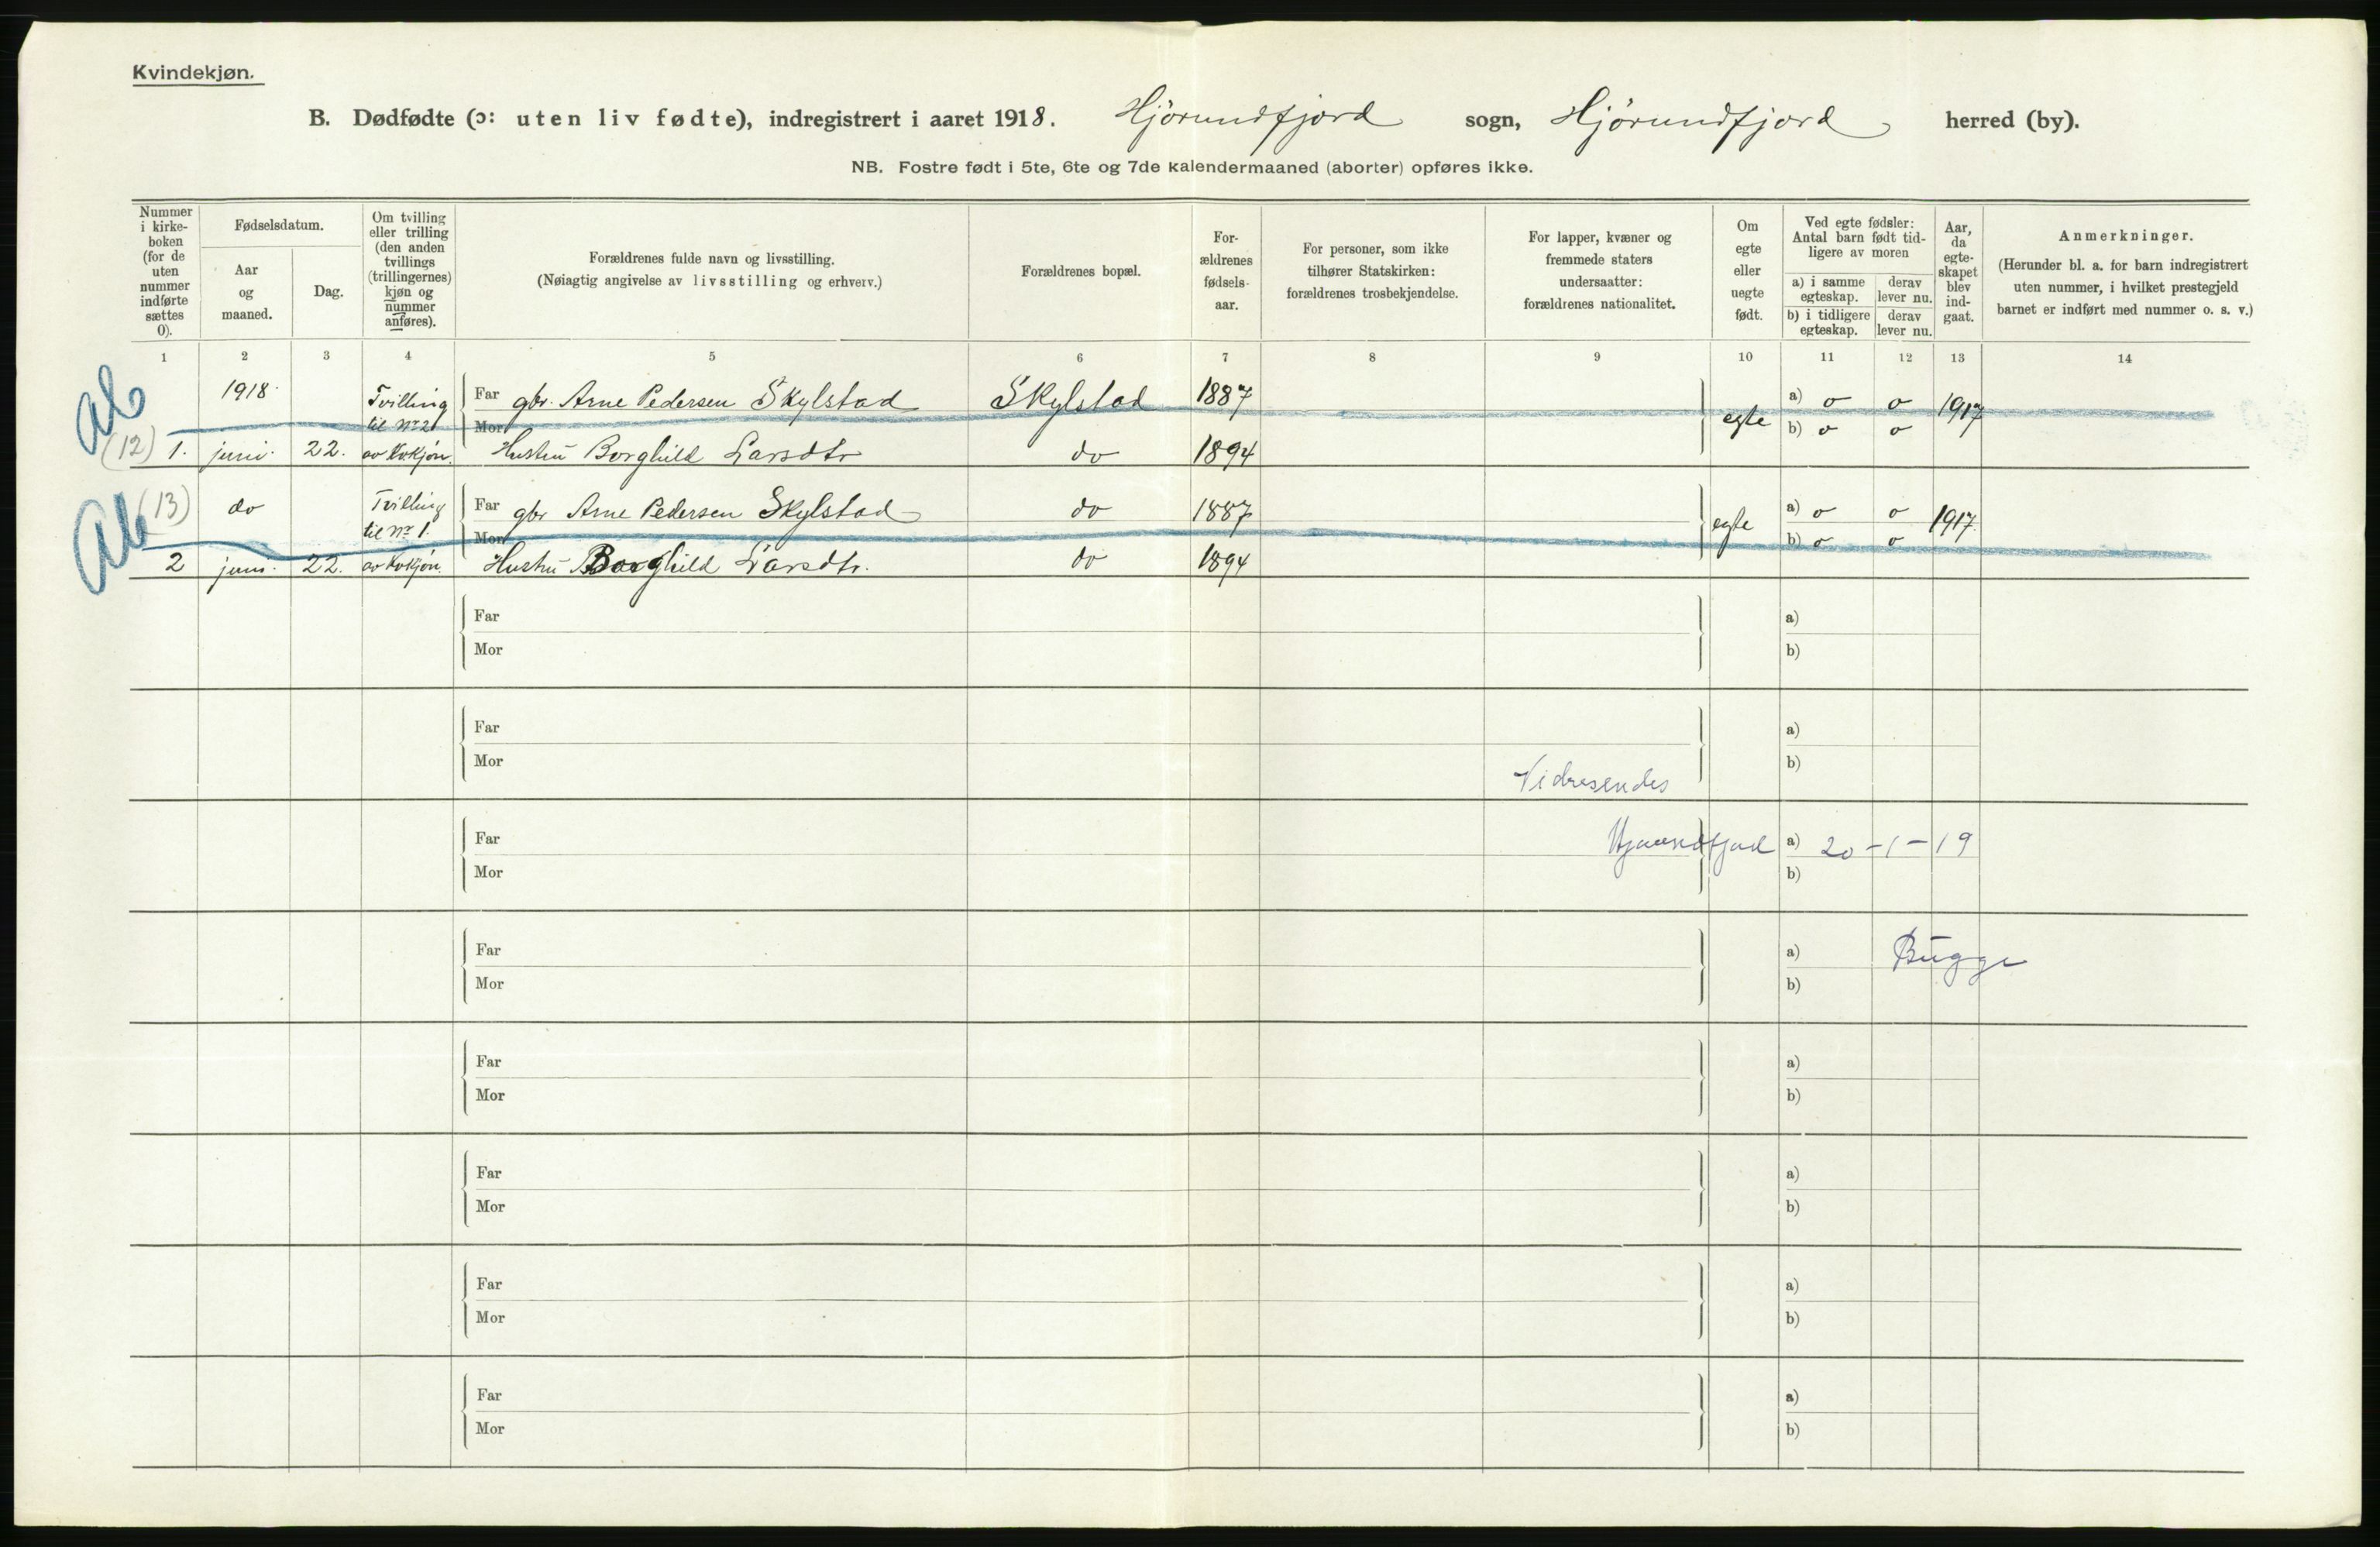 Kvindekjøn.
B. Dødfødte (ɔ: uten liv fødte), indregistrert i aaret 1918. Hjörundfjord sogn, Hjörundfjord herred (by).
NB. Fostre født i 5te, 6te og 7de kalendermaaned (aborter) opføres ikke.
Nummer i kirke-boken (for de uten nummer indførte sættes 0).
Fødselsdatum.
Aar og maaned.
Dag.
Om tvilling eller trilling (den anden tvillings (trillingernes) kjøn og nummer anføres).
Forældrenes fulde navn og livsstilling.
(Nøiagtig angivelse av livsstilling og erhverv.)
Forældrenes bopæl.
For-ældrenes fødsels-aar.
For personer, som ikke tilhører Statskirken: forældrenes trosbekjendelse.
For lapper, kvæner og fremmede staters undersaatter: forældrenes nationalitet.
Om egte eller uegte født.
Ved egte fødsler: Antal barn født tid-ligere av moren
a) i samme egteskap. derav lever nu.
b) i tidligere egteskap. derav lever nu.
Aar, da egte-skapet blev ind-gaat.
Anmerkninger.
(Herunder bl. a. for barn indregistrert uten nummer, i hvilket prestegjeld barnet er indført med nummer o. s. v.)
1 2 3 4 5 6 7 8 9 10 11 12 13 14
Ab
1918 Tvilling til No 2 Far gbr. Arne Pedersen Skylstad Skylstad 1887 egte a) o o 1917
Mor b) o o
(12) 1. juni 22. av Kvkjön. Hustru Borghild Larsdtr do 1894
Ab (13) do Tvilling til No 1. Far gbr Arne Pedersen Skylstad do 1887 egte a) o o 1917
Mor b) o o
2 juni 22. av Kvkjön. Hustru Borghild Larsdtr. do 1894
Far a)
Mor b)
Far a)
Mor b)
Far Hjørundfjord a) 20-1-19
Mor b)
Far a) Bugge
Mor b)
Far a)
Mor b)
Far a)
Mor b)
Far a)
Mor b)
Far a)
Mor b)